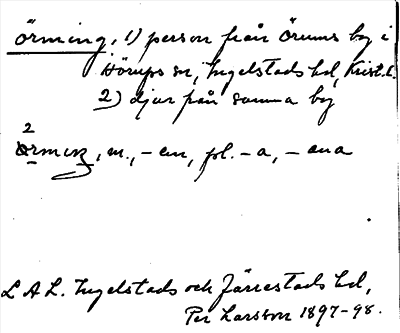 örming, 1) person från Örums by i
Hörups sn, Ingelstads hd, Krist. l.
2) djur från samma by
2
ørmiŋ, m., -en, pl. -a, -ana
L A L. Ingelstads och Järrestads hd,
Per Larsson 1897-98.